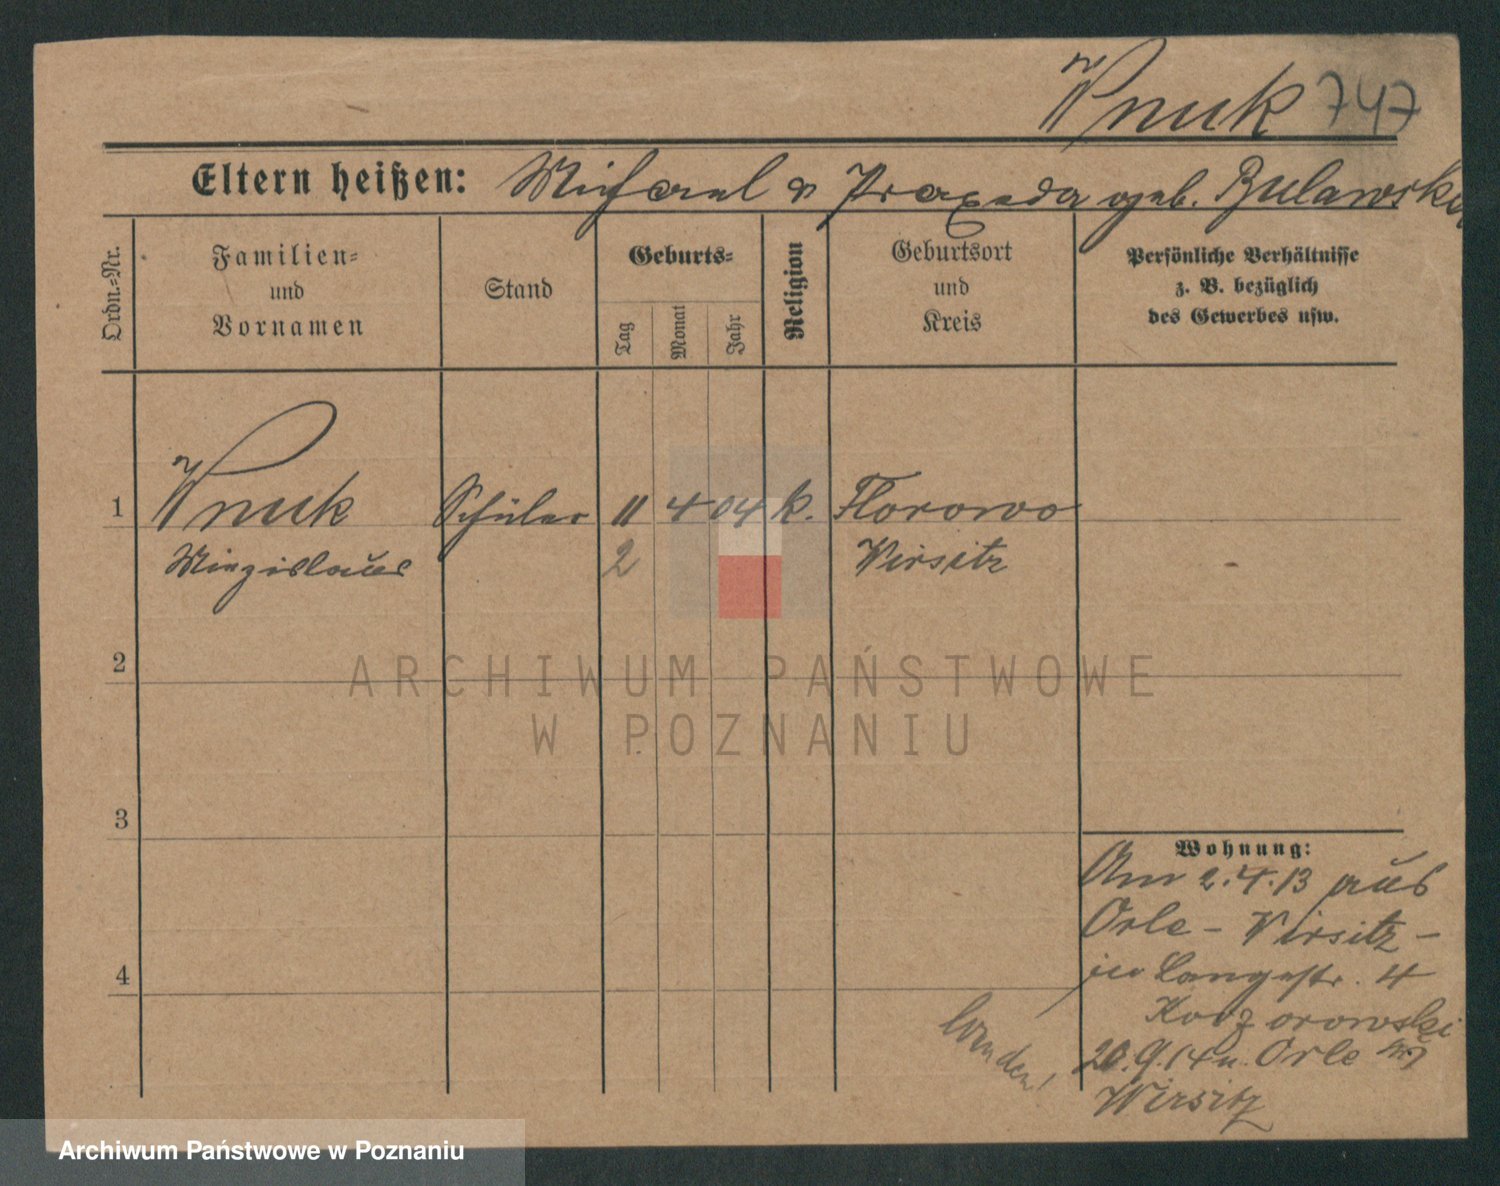 Wnuk 747
Eltern heißen: Michael & Praxeda geb. Bulawska
Ordn.-Nr.
Familien-
und
Vornamen
Stand
Geburts-
Tag
Monat
Jahr
Religion
Geburtsort
und
Kreis
Persönliche Verhältnisse
z. B. bezüglich
des Gewerbes usw.
1 Wnuk Schüler 11 4 04 k. Florowo
Miezislaus 2 Wirsitz
2
3
4
Wohnung:
Am 2.4.13 aus
Orle - Wirsitz -
in Langestr. 4
20.9.14 n. Orle
Wirsitz
wenden!
ARCHIWUM PAŃSTWOWE
W POZNANIU
Archiwum Państwowe w Poznaniu